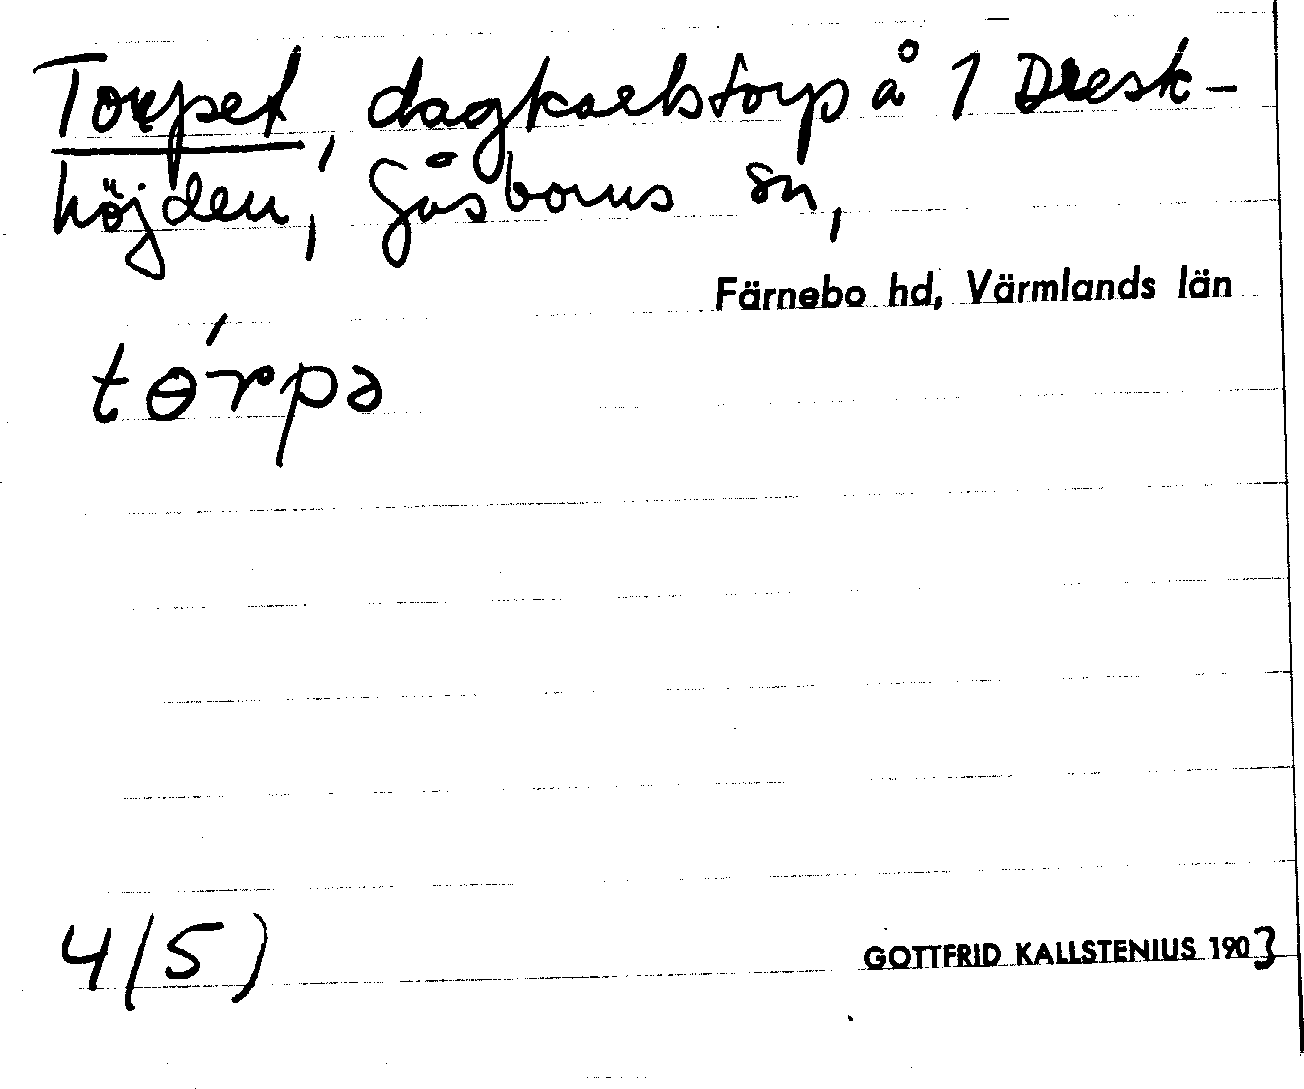 Torpet, dagkarlstorp å 1 Dresk-
höjden, Gåsborns sn,
Färnebo hd, Värmlands län
tɵ́rpə
4(5)
GOTTFRID KALLSTENIUS 1903